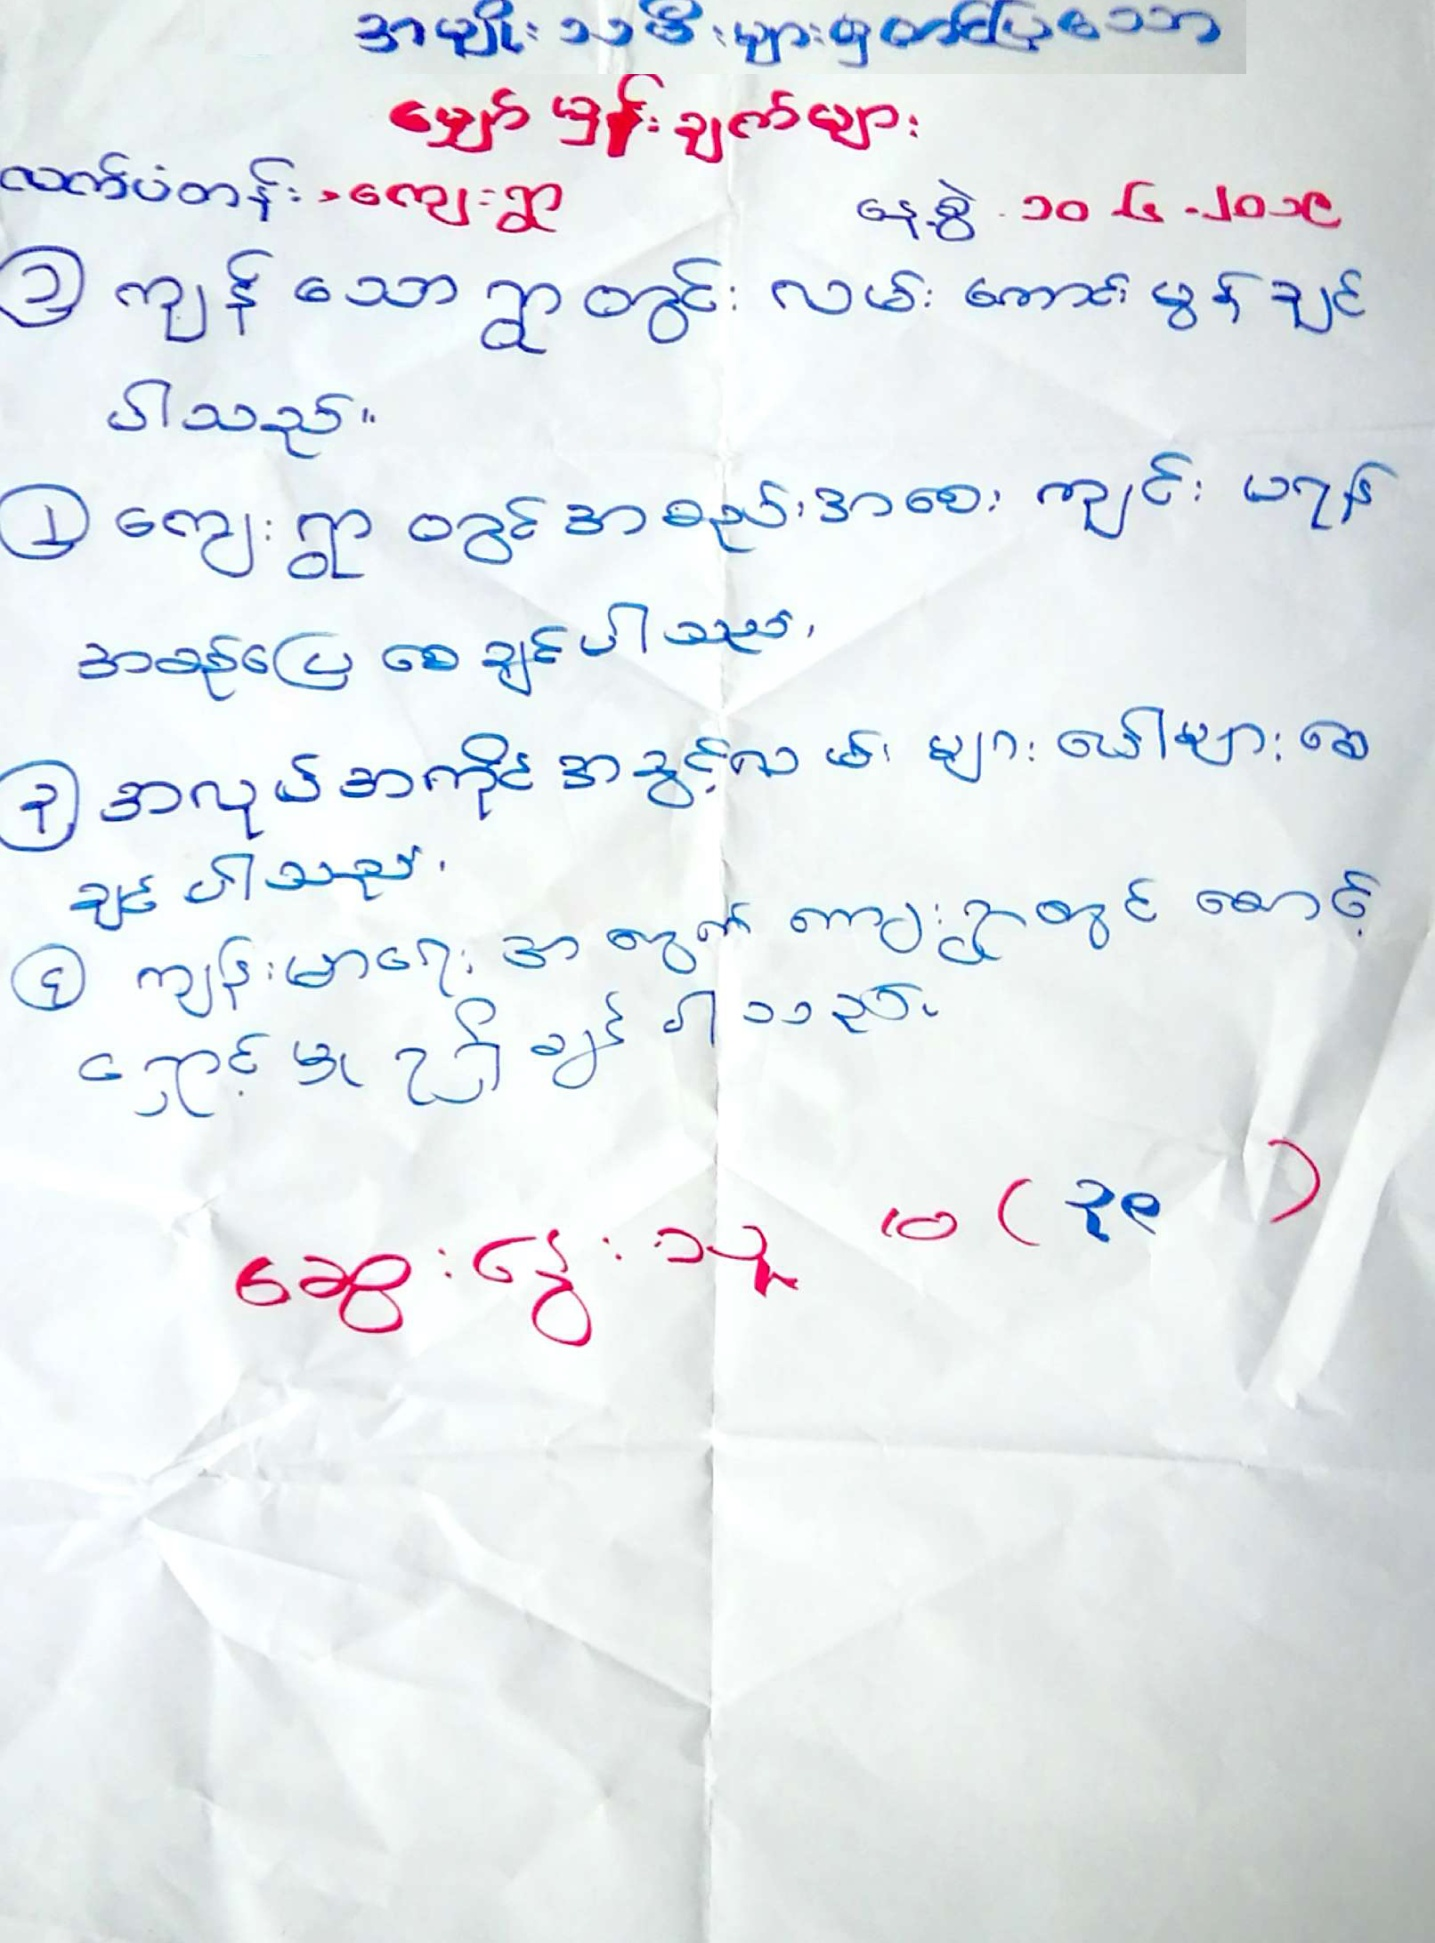 အမျိုးသမီးများမှတင်ပြသော
မျှော်မှန်းချက်များ
လက်ပံတန်း ကျေးရွာ နေ့စွဲ ၁၀-၆-၂၀၁၉
၁ ကျန်သောရွာတွင်း လမ်းကောင်းမွန်ချင်
ပါသည်။
၂ ကျေးရွာတွင်အစည်းအဝေးကျင်းပရန်
အဆင်ပြေစေချင်ပါသည်၊
၃ အလုပ်အကိုင်အခွင့်လမ်းများပေါများစေ
ချင်ပါသည်၊
၄ ကျန်းမာရေးအတွက် ကျေးရွာတွင် စောင့်
ရှောင့်မှု ရှိချင်ပါသည်၊
ဆွေးနွေးသူ ၊၀ ( ၃၉ )